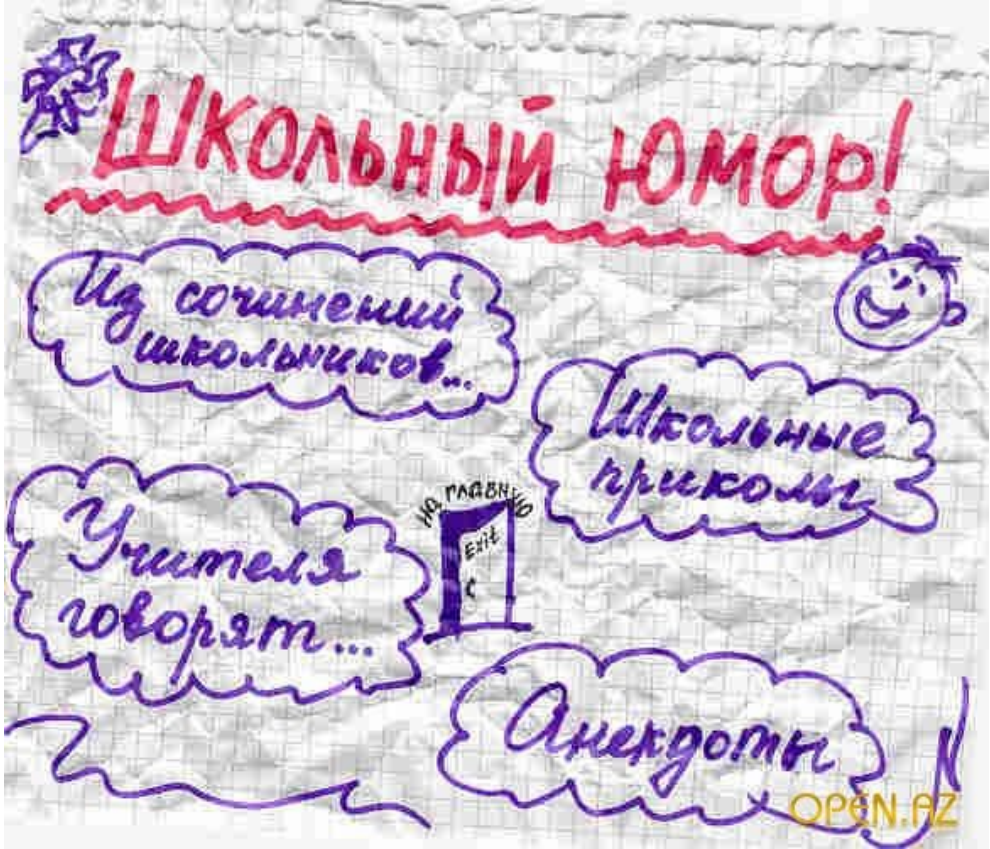 Школьный юмор!
Из сочинений
школьников...
Школьные
приколы
на главную
Exit
Учителя
говорят...
Анекдоты
OPEN.AZ